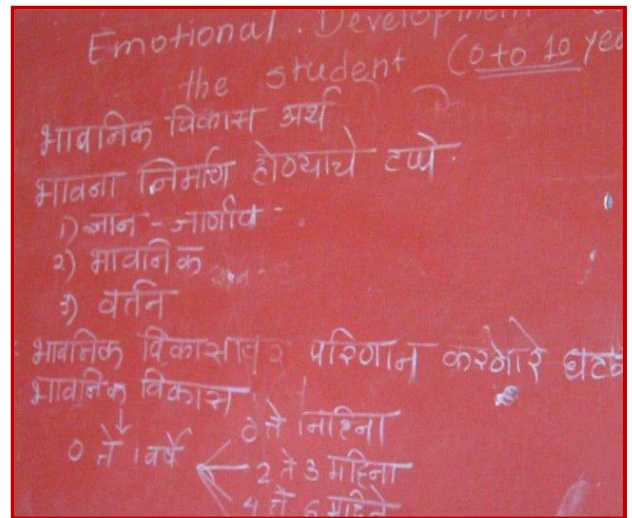 Emotional. Development
the student (0 to 10 yea
भावनिक विकास अर्थ
भावना निर्माण होण्याचे टप्पे.
1) ज्ञान - जाणीव -
2) भावनिक
3) वर्तन
भावनिक विकासावर परिणाम करणारे घटक
भावनिक विकास
0 ते 1 वर्षे
0 ते 1 महिना
2 ते 3 महिना
4 ते 6 महिने